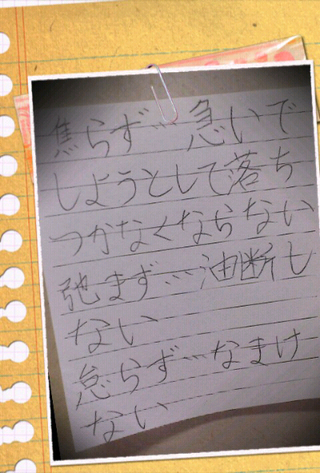 焦らず…急いで
しようとして落ち
つかなくならない
弛まず…油断し
ない
怠らず…なまけ
ない